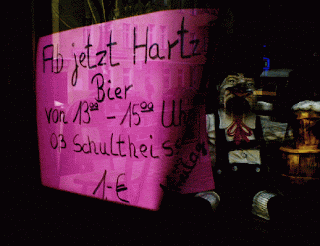 Ab jetzt Hartz
Bier
von 13⁰⁰ - 15⁰⁰ Uhr
03 Schultheiss
1,-€